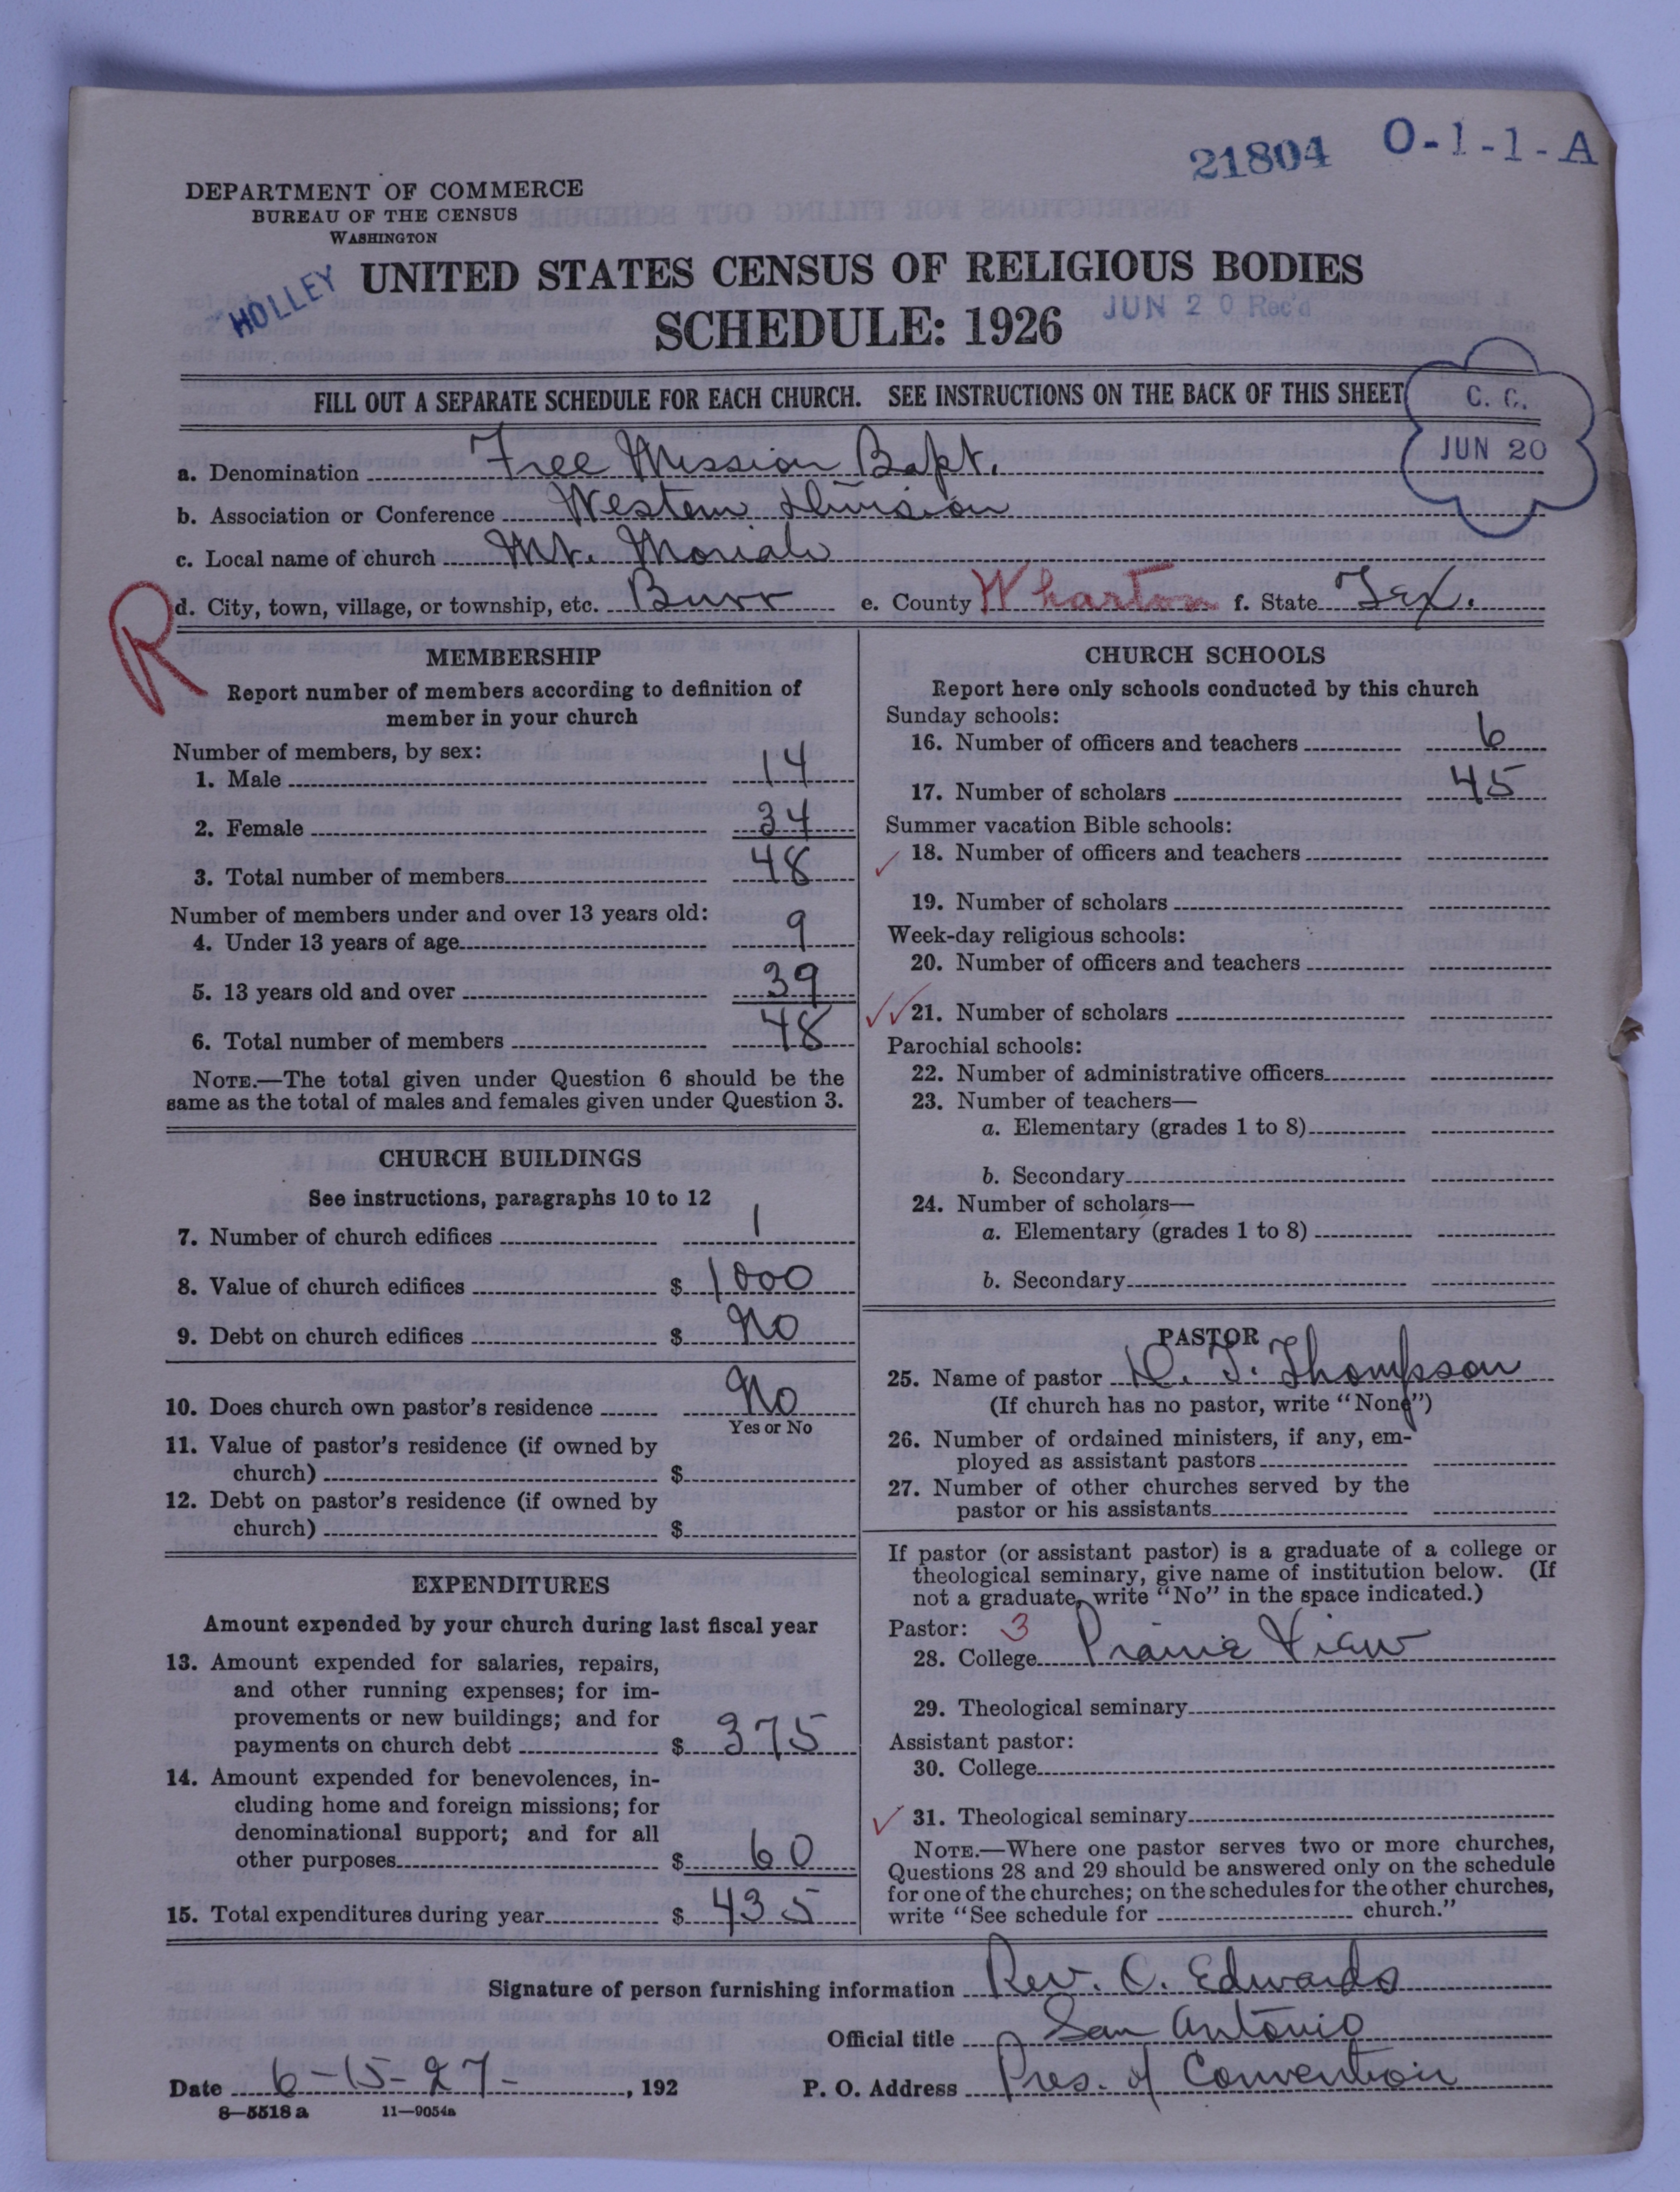 21804 O-1-1-A
DEPARTMENT OF COMMERCE
BUREAU OF THE CENSUS
WASHINGTON
HOLLEY
UNITED STATES CENSUS OF RELIGIOUS BODIES
JUN 20 Rec'd
SCHEDULE: 1926
FILL OUT A SEPARATE SCHEDULE FOR EACH CHURCH. SEE INSTRUCTIONS ON THE BACK OF THIS SHEET
C. C.
JUN 20
a. Denomination Free Mission Bapt.
b. Association or Conference Western Division
c. Local name of church Mt. Moriah
R
d. City, town, village, or township, etc. Burr e. County Wharton f. State Tex.
MEMBERSHIP
Report number of members according to definition of
member in your church
Number of members, by sex:
1. Male 14
2. Female 34
3. Total number of members 48
Number of members under and over 13 years old:
4. Under 13 years of age 9
5. 13 years old and over 39
6. Total number of members 48
NOTE.—The total given under Question 6 should be the
same as the total of males and females given under Question 3.
CHURCH BUILDINGS
See instructions, paragraphs 10 to 12
7. Number of church edifices 1
8. Value of church edifices $ 1000
9. Debt on church edifices $ No
10. Does church own pastor's residence No
Yes or No
11. Value of pastor's residence (if owned by
church) $
12. Debt on pastor's residence (if owned by
church) $
EXPENDITURES
Amount expended by your church during last fiscal year
13. Amount expended for salaries, repairs,
and other running expenses; for im-
provements or new buildings; and for
payments on church debt $ 375
14. Amount expended for benevolences, in-
cluding home and foreign missions; for
denominational support; and for all
other purposes $ 60
15. Total expenditures during year $ 435
CHURCH SCHOOLS
Report here only schools conducted by this church
Sunday schools:
16. Number of officers and teachers 6
17. Number of scholars 45
Summer vacation Bible schools:
18. Number of officers and teachers
19. Number of scholars
Week-day religious schools:
20. Number of officers and teachers
21. Number of scholars
Parochial schools:
22. Number of administrative officers
23. Number of teachers—
a. Elementary (grades 1 to 8)
b. Secondary
24. Number of scholars—
a. Elementary (grades 1 to 8)
b. Secondary
PASTOR
25. Name of pastor D. T. Thompson
(If church has no pastor, write "None")
26. Number of ordained ministers, if any, em-
ployed as assistant pastors
27. Number of other churches served by the
pastor or his assistants
If pastor (or assistant pastor) is a graduate of a college or
theological seminary, give name of institution below. (If
not a graduate, write "No" in the space indicated.)
Pastor: 3
28. College Prairie View
29. Theological seminary
Assistant pastor:
30. College
31. Theological seminary
NOTE.—Where one pastor serves two or more churches,
Questions 28 and 29 should be answered only on the schedule
for one of the churches; on the schedules for the other churches,
write "See schedule for church."
Signature of person furnishing information Rev. C. Edwards
Official title San Antonio
Date 6-15-27-, 192 P. O. Address Pres. of Convention
8—5518 a 11—9054a